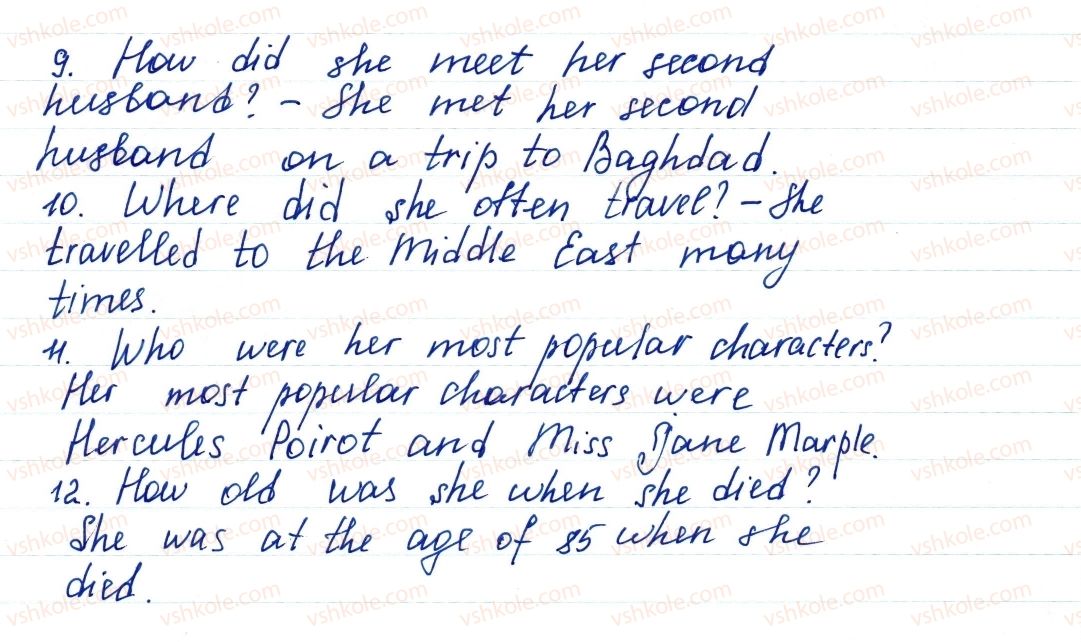 9. How did she meet her second
husband? – She met her second
husband on a trip to Baghdad.
10. Where did she often travel? – She
travelled to the Middle East many
times.
11. Who were her most popular characters?
Her most popular characters were
Hercules Poirot and Miss Jane Marple.
12. How old was she when she died?
She was at the age of 85 when she
died.